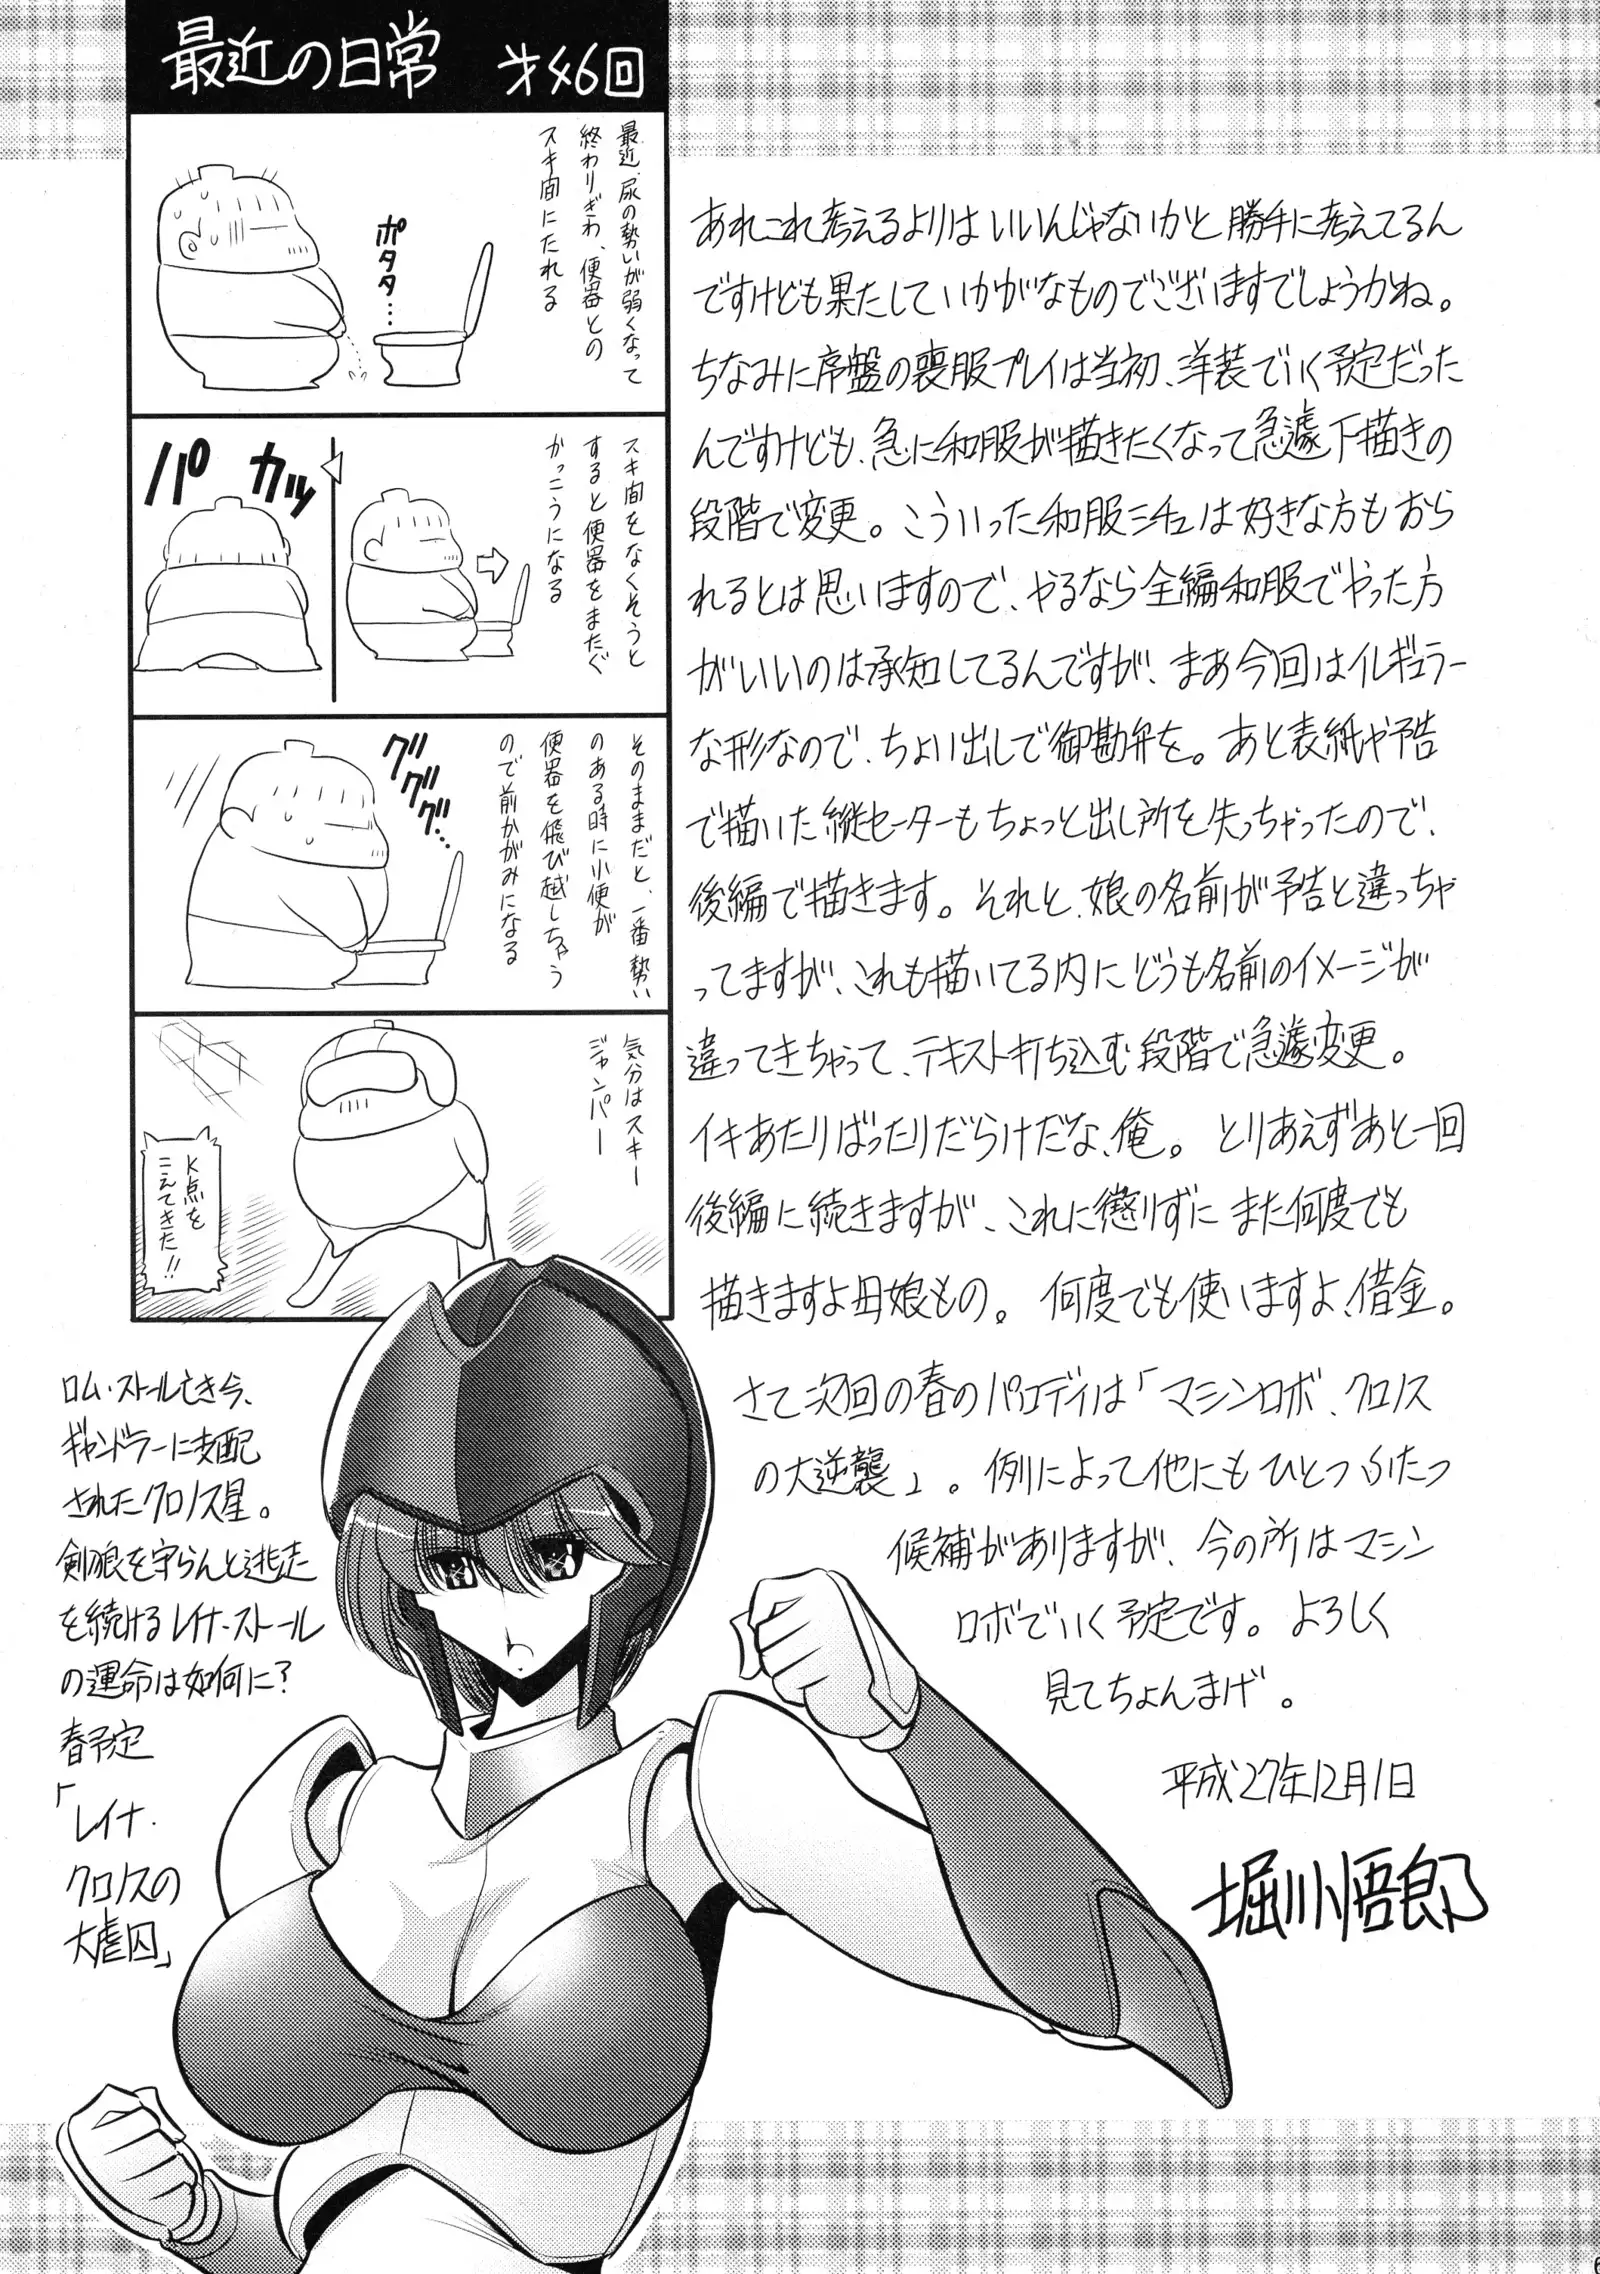 最近の日常 才46回
最近、尿の勢いが弱くなって
終わりぎわ、便器との
スキ間にたれる
ポタタ…
スキ間をなくそうと
すると便器をまたぐ
かっこうになる
カッ
パ
そのままだと、一番勢い
のある時に小便が
便器を飛び越しちゃう
ので前かがみになる
グググググ…
気分はスキー
ジャンパー
K点を
こえてきた!!
あれこれ考えるよりはいいんじゃないかと勝手に考えてるん
ですけども果たしていかがなものでございますでしょうかね。
ちなみに序盤の喪服プレイは当初、洋装でいく予定だった
んですけども、急に和服が描きたくなって急遽下描きの
段階で変更。こういった和服ミチュは好きな方もおら
れるとは思いますので、やるなら全編和服でやった方
がいいのは承知してるんですが、まあ今回はイレギュラー
な形なので、ちょい出しで御勘弁を。あと表紙や予告
で描いた縦セーターもちょっと出し所を失っちゃったので、
後編で描きます。それと、娘の名前が予告と違っちゃ
ってますが、これも描いてる内にどうも名前のイメージが
違ってきちゃって、テキスト打ち込む段階で急遽変更。
イキあたりばったりだらけだな、俺。とりあえずあと一回
後編に続きますが、これに懲りずにまた何度でも
描きますよ母娘もの。何度でも使いますよ、借金。
さて次回の春のパロディは「マシンロボ、クロノス
の大逆襲」。例によって他にもひとつふたつ
候補がありますが、今の所はマシン
ロボでいく予定です。よろしく
見てちょんまげ。
平成27年12月1日
堀川悟郎
ロム・ストール亡き今、
ギャンドラーに支配
されたクロノス星。
剣狼を守らんと逃走
を続けるレイナ・ストール
の運命は如何に?
春予定
「レイナ.
クロノスの
大虐囚」
6